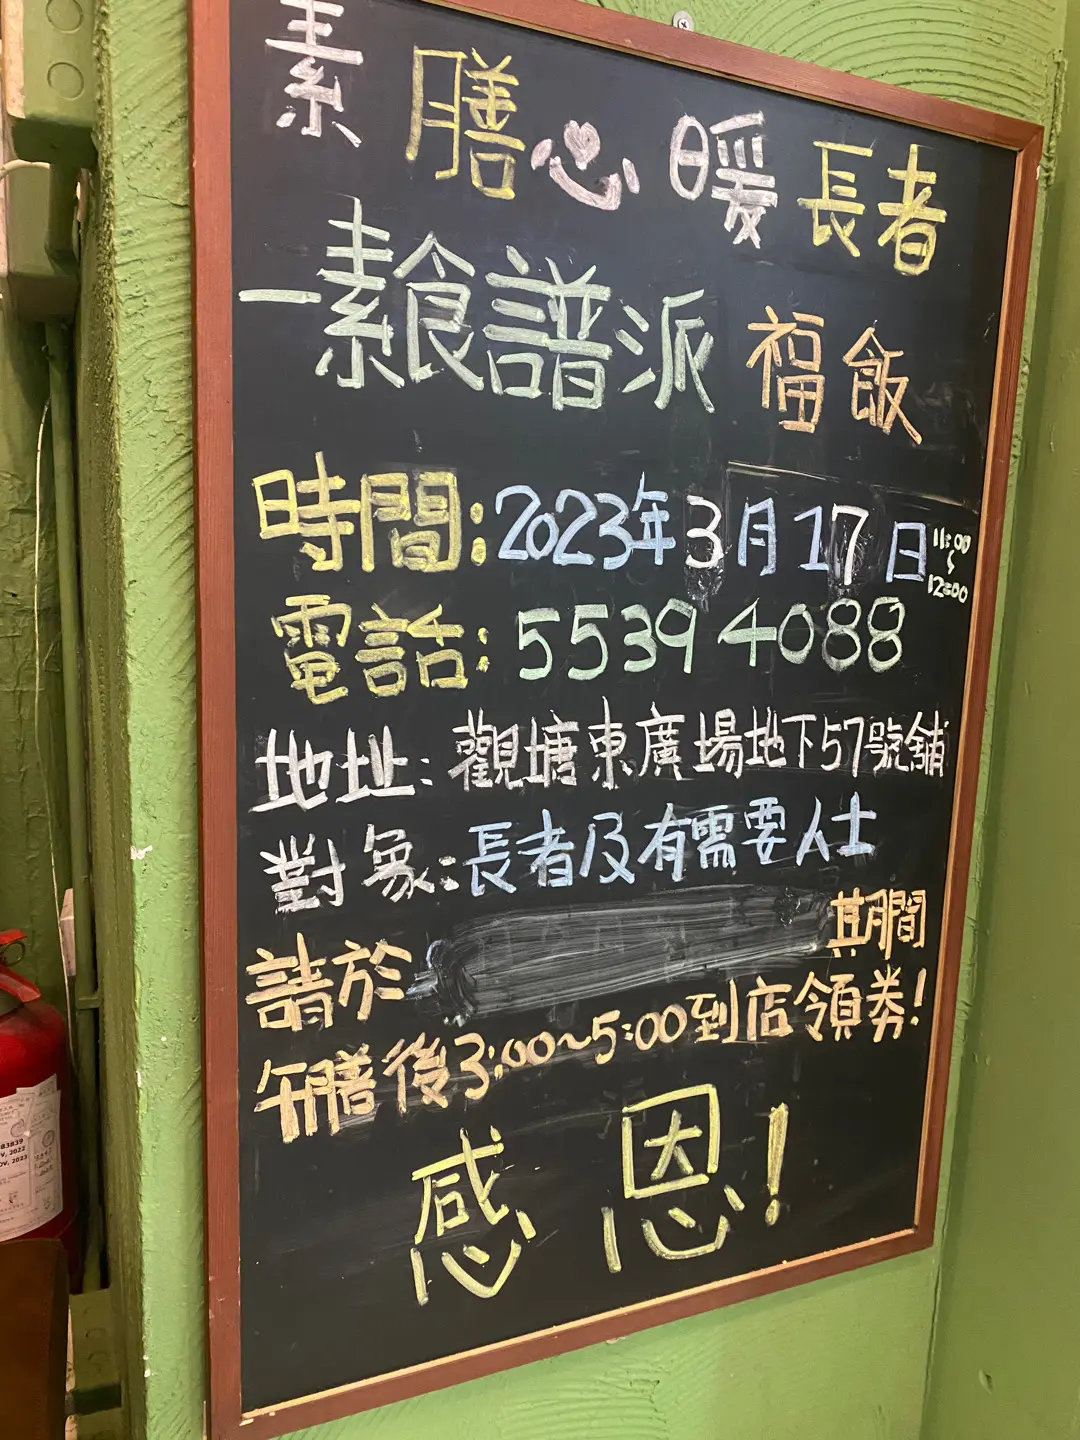 素膳心暖長者
一素食譜派福飯
時間:2023年3月17日 11:00~12:00
電話:5539 4088
地址:觀塘東廣場地下57號舖
對象:長者及有需要人士
請於 其期間
午膳後3:00~5:00到店領券!
感恩!
83839
V, 2022
OV, 2023